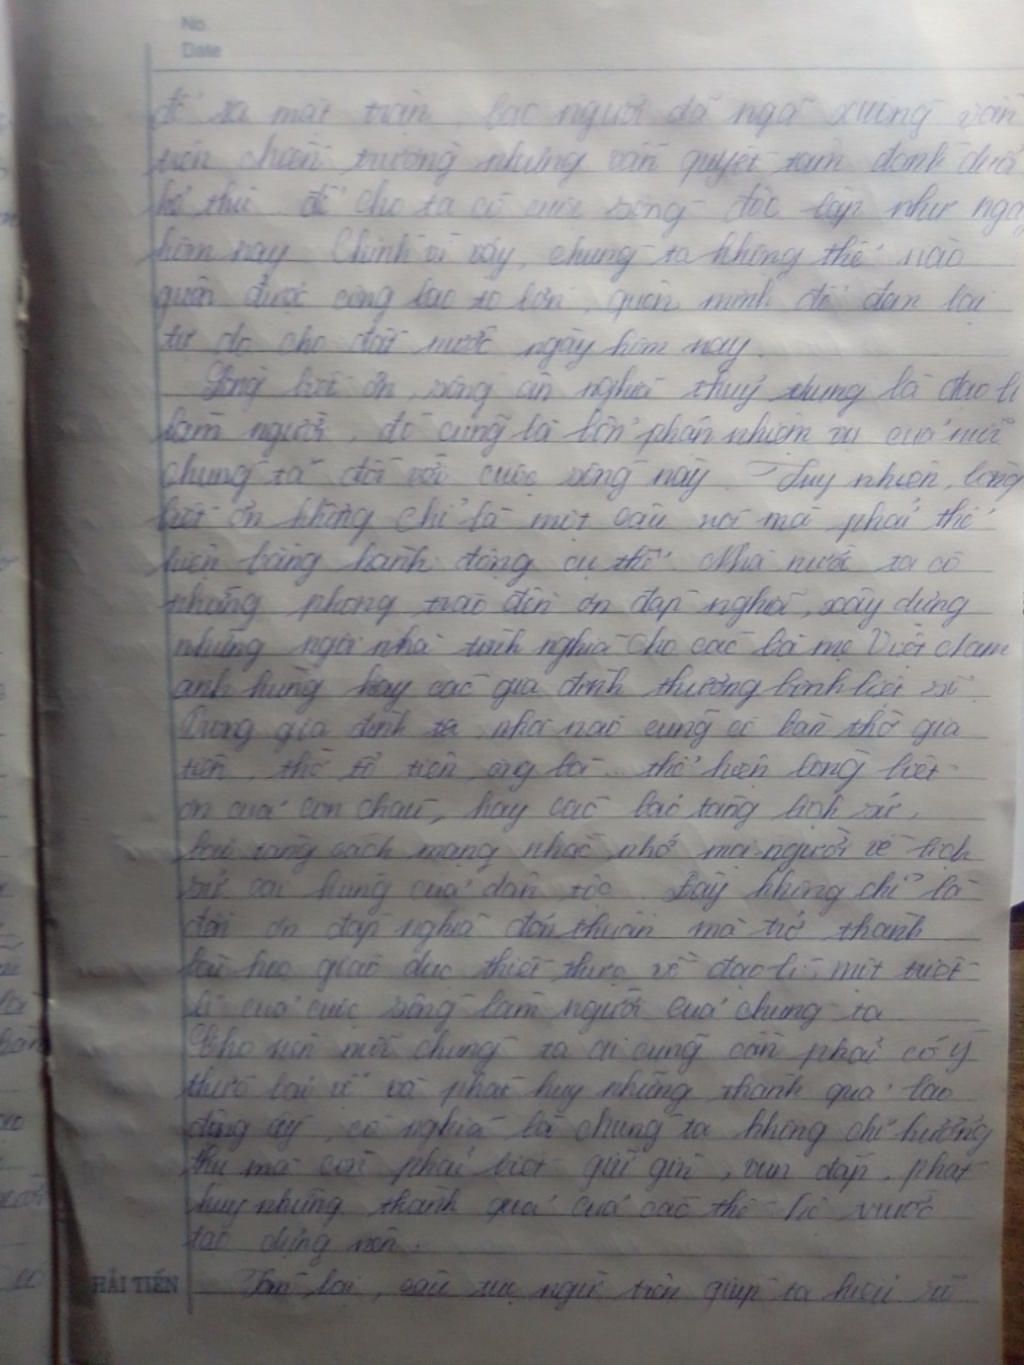 No
Date
để ra mặt trận, bao người đã ngã xuống vẫn
trên chiến trường nhưng vẫn quyết tâm đánh đuổi
kẻ thù để cho ta có cuộc sống độc lập như ngà
hôm nay. Chính vì vậy, chúng ta không thể nào
quên được công lao to lớn, quên mình để đem lại
tự do cho đất nước ngày hôm nay.
Lòng biết ơn, sống ân nghĩa thuỷ chung là đạo lí
làm người, đó cũng là bổn phận nhiệm vụ của mỗi
chúng ta đối với cuộc sống này. Tuy nhiên, lòng
biết ơn không chỉ là một câu nói mà phải thể
hiện bằng hành động cụ thể. Nhà nước ta có
những phong trào đền ơn đáp nghĩa, xây dựng
những ngôi nhà tình nghĩa cho các bà mẹ Việt Nam
anh hùng hay các gia đình thương binh liệt sĩ
Trong gia đình nhà nào cũng có bàn thờ gia
tiên, thờ tổ tiên, ông bà... thể hiện lòng biết
ơn của con cháu, hay các bảo tàng lịch sử,
bảo tàng cách mạng nhắc nhở mọi người về lịch
sử oai hùng của dân tộc. Đây không chỉ là
đền ơn đáp nghĩa đơn thuần mà trở thành
bài học giáo dục thiết thực về đạo lí, một triết
lí của cuộc sống làm người của chúng ta
Cho nên mỗi chúng ta ai cũng cần phải có ý
thức bảo vệ và phát huy những thành quả lao
động ấy, có nghĩa là chúng ta không chỉ hưởng
thụ mà còn phải biết giữ gìn, vun đắp, phát
huy những thành quả của các thế hệ trước
tạo dựng nên.
HẢI TIẾN Tóm lại, câu tục ngữ trên giúp ta hiểu rõ